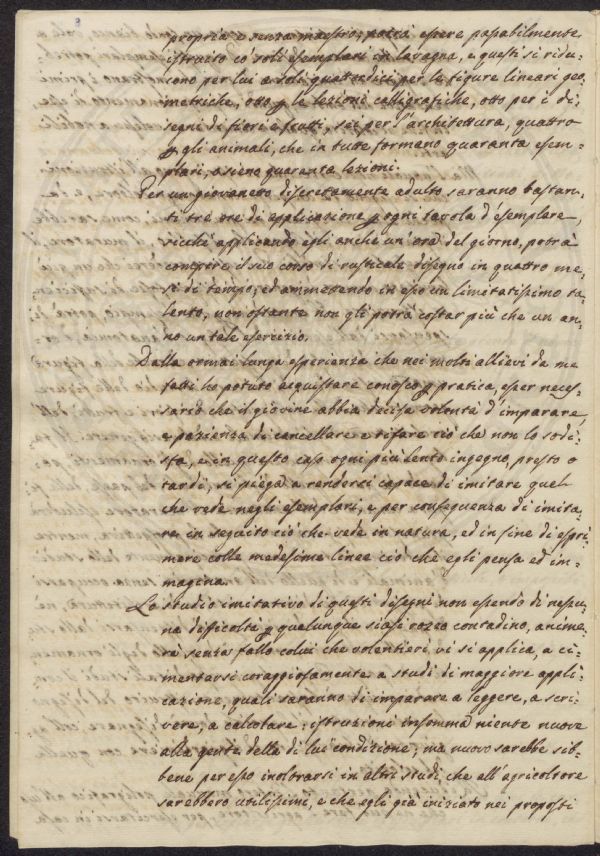 8
propria e senza maestro; potrà essere passabilmente
istruito co' soli esemplari in lavagna, e questi si ridu-
cono per lui a soli quattordici per le figure lineari geo-
metriche, otto p le lezioni calligrafiche, otto per i di-
segni di fiori e frutti, sei per l'architettura, quattro
p gli animali, che in tutte formano quaranta esem-
plari, o sieno quaranta lezioni.
Per un giovanetto discretamente adulto saranno bastan-
ti tre ore di applicazione p ogni tavola d'esemplare,
sicché applicando egli anche un' ora del giorno, potrà
compire il suo corso di rusticale disegno in quattro me-
si di tempo; ed ammettendo in esso un limitatissimo ta-
lento, non ostante non gli potrà costar più che un an-
no un tale esercizio.
Dalla ormai lunga esperienza che nei molti allievi da me
fatti ho potuto acquistare conosco p pratica, esser neces-
sario che il giovine abbia decisa volontà d'imparare,
e pazienza di cancellare e rifare ciò che non lo sodi-
sfa, e in questo caso ogni più lento ingegno, presto o
tardi, si piega a rendersi capace di imitare quel
che vede negli esemplari, e per conseguenza di imita-
re in seguito ciò che vede in natura, ed in fine di espri-
mere colle medesime linee ciò che egli pensa ed im-
magina.
Lo studio imitativo di questi disegni non essendo di nessu-
na difficoltà p qualunque siasi rozzo contadino, anime-
rà senza fallo colui che volentieri vi si applica, a ci-
mentarsi coraggiosamente a studi di maggiore appli-
cazione, quali saranno di imparare a leggere, a scri-
vere, a calcolare; istruzioni insomma niente nuove
alla gente della di lui condizione; ma nuovo sarebbe sib-
bene per esso inoltrarsi in altri studi, che all'agricoltore
sarebbero utilissimi, e che egli già iniziato nei proposti